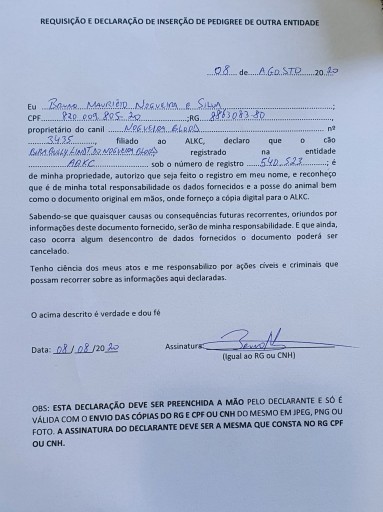 REQUISIÇÃO E DECLARAÇÃO DE INSERÇÃO DE PEDIGREE DE OUTRA ENTIDADE
08 de AGOSTO 20 20
Eu Bruno Mauricio Nogueira e Silva;
CPF 820 009 805-20 ;RG 9863083-80,
proprietário do canil NOGUEIRA BLOOD nº
3435, filiado ao ALKC, declaro que o cão
NOGUEIRA BLOOD registrado na entidade
ABKC sob o número de registro 540.523; é
de minha propriedade, autorizo que seja feito o registro em meu nome, e reconheço
que é de minha total responsabilidade os dados fornecidos e a posse do animal bem
como o documento original em mãos, onde forneço a cópia digital para o ALKC.
Sabendo-se que quaisquer causas ou consequências futuras recorrentes, oriundos por
informações deste documento fornecido, serão de minha responsabilidade. E que ainda,
caso ocorra algum desencontro de dados fornecidos o documento poderá ser
cancelado.
Tenho ciência dos meus atos e me responsabilizo por ações cíveis e criminais que
possam recorrer sobre as informações aqui declaradas.
O acima descrito é verdade e dou fé
Data: 08/08/20 20 Assinatura
(Igual ao RG ou CNH)
OBS: ESTA DECLARAÇÃO DEVE SER PREENCHIDA A MÃO PELO DECLARANTE E SÓ É
VÁLIDA COM O ENVIO DAS CÓPIAS DO RG E CPF OU CNH DO MESMO EM JPEG, PNG OU
FOTO. A ASSINATURA DO DECLARANTE DEVE SER A MESMA QUE CONSTA NO RG CPF
OU CNH.